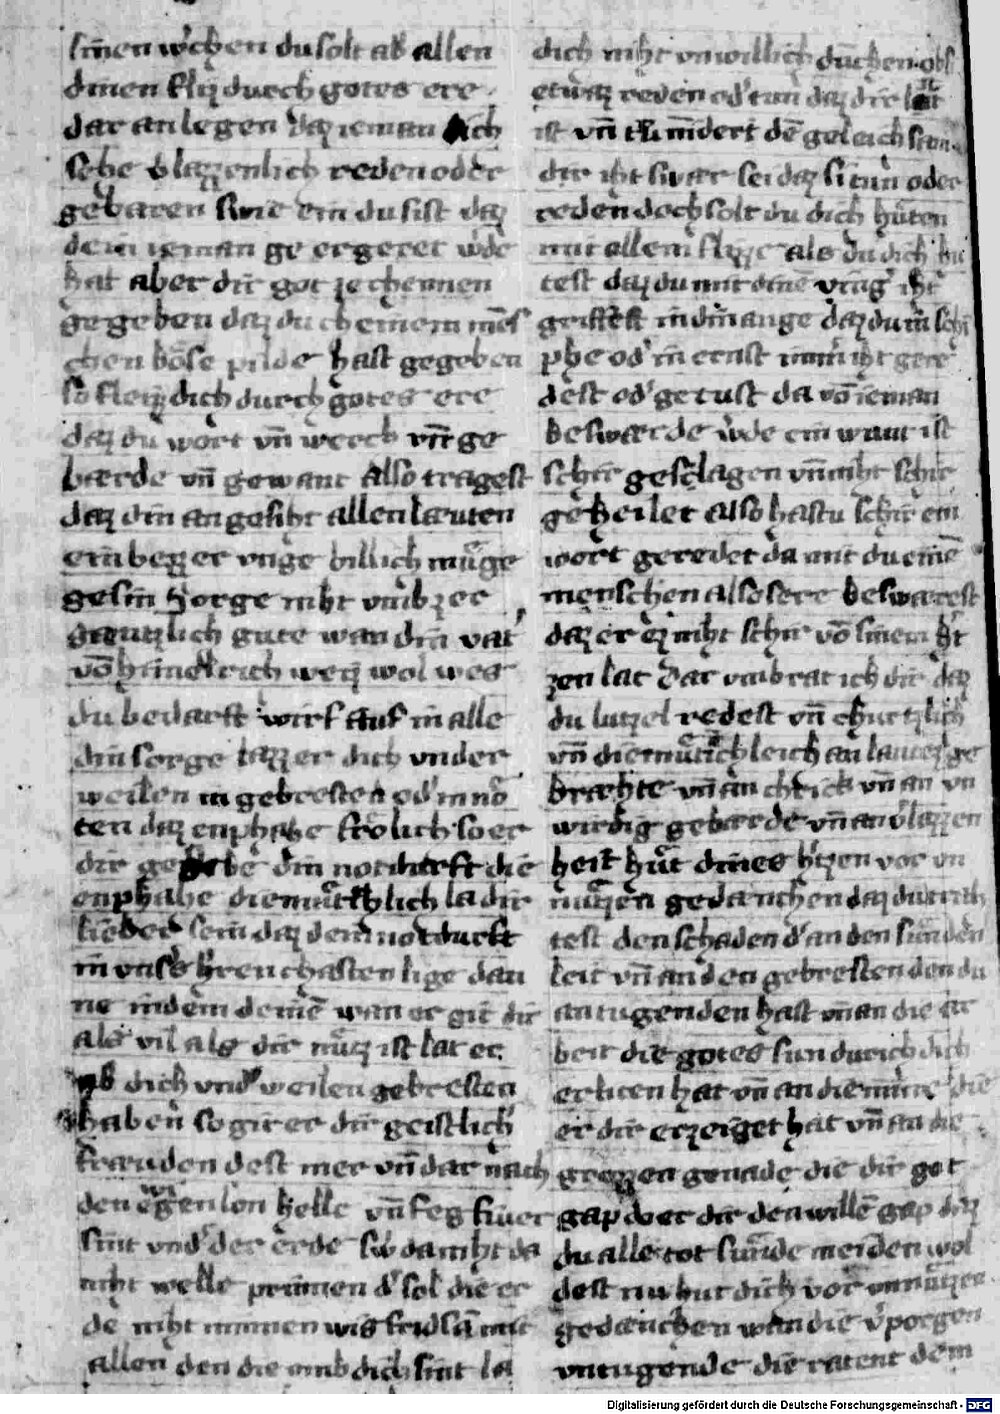 sinen wchen du solt ab allen
dinen fliz durch gotes ere
dar an legen daz ieman dich
sehe v̓lazzenlich reden oder
gebaren swie ein du sist daz
dein ieman ge ergeret w̓de
hat aber dir got ze chennen
gegeben daz du cheinem mēs
chen böse pilde hast gegeben
so fleiz dich durch gotes ere
daz du wort vn̄ werch vn̄ ge
bærde vn̄ gewant also tragest
daz din angesiht allen læuten
ein bezzerunge billich müge
gesin Sorge niht vmb zer
gæntzlich gute wan din vat̓
vō himelrich weiz wol wes
du bedarft wirf auf in alle
din sorge lazz er dich vnder
weilen in gebresten od̓ in nö
ten daz enphahe frölich so er
dir gebe din notdurft die
enphahe diemütchlich la dir
lieber sein daz dein notdurft
in vnsers h̓ren chasten lige dan
ne in dem deinē wan er git dir
als vil als dir nütz ist lat er
dich vnd̓ weilen gebresten
haben so git er dir geistlich̓
fræuden dest mer vn̄ dar nach
den ewigen lon helle vn̄ fegfiuer
sint vnd̓ der erde sw̓ da niht da
niht welle prinnen d̓ sol die er
de niht minnen wis fridsā mit
allen den die umb dich sint la
dich niht vnwillich dunchen ob si
etwaz reden od̓ tun daz dir leit
ist vn̄ mindert dē geleich sam
dir iht swær sei daz si tun oder
reden doch solt du dich hüten
mit allem flizze als du dich hü
test daz du mit dinē ving̓ iht
griffest in din auge daz du in schi
phe od̓ in ernst nimm̓ iht gere
dest od̓ getust da vō ieman
beswærde w̓de ein wunt ist
schir geslagen vn̄ niht schir
geheilet also hastu schir ein
wort geredet da mit du einē
menschen also sere beswærest
daz er ez niht schir vō sinem h̓t
zen lat Dar vmb rat ich dir daz
du lutzel redest vn̄ churtzlich
vn̄ diemütichleich an lautez ge
bræhte vn̄ an chrick vn̄ an vn
wirdig gebærde vn̄ an v̓lazzen
heit hüt dines h̓tzen vor vn
nützen gedanchen daz du rih
test den schaden d̓ an den sünden
leit vn̄ an den gebresten den du
an tugenden hast vn̄ an die ar
beit die gotes sun durich dich
erliten hat vn̄ an die minne die
er dir erzeiget hat vn̄ an die
grozzen genade die dir got
gap do er dir den willē gap daz
du alle tot sunde meiden wol
dest nu hut dich vor vnnützen
gedænchen wan die v̓porgen
vntugende die ratent dem
Digitalisierung gefördert durch die Deutsche Forschungsgemeinschaft - DFG